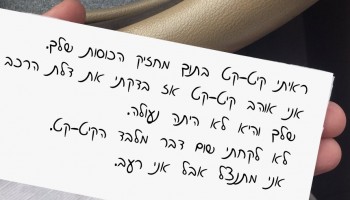 ראיתי קיט-קט בתוך מחזיק הכוסות שלך.
אני אוהב קיט-קט אז בדקתי את דלת הרכב
שלך והיא לא היתה נעולה.
לא לקחתי שום דבר מלבד הקיט-קט.
אני מתנצל אבל אני רעב.